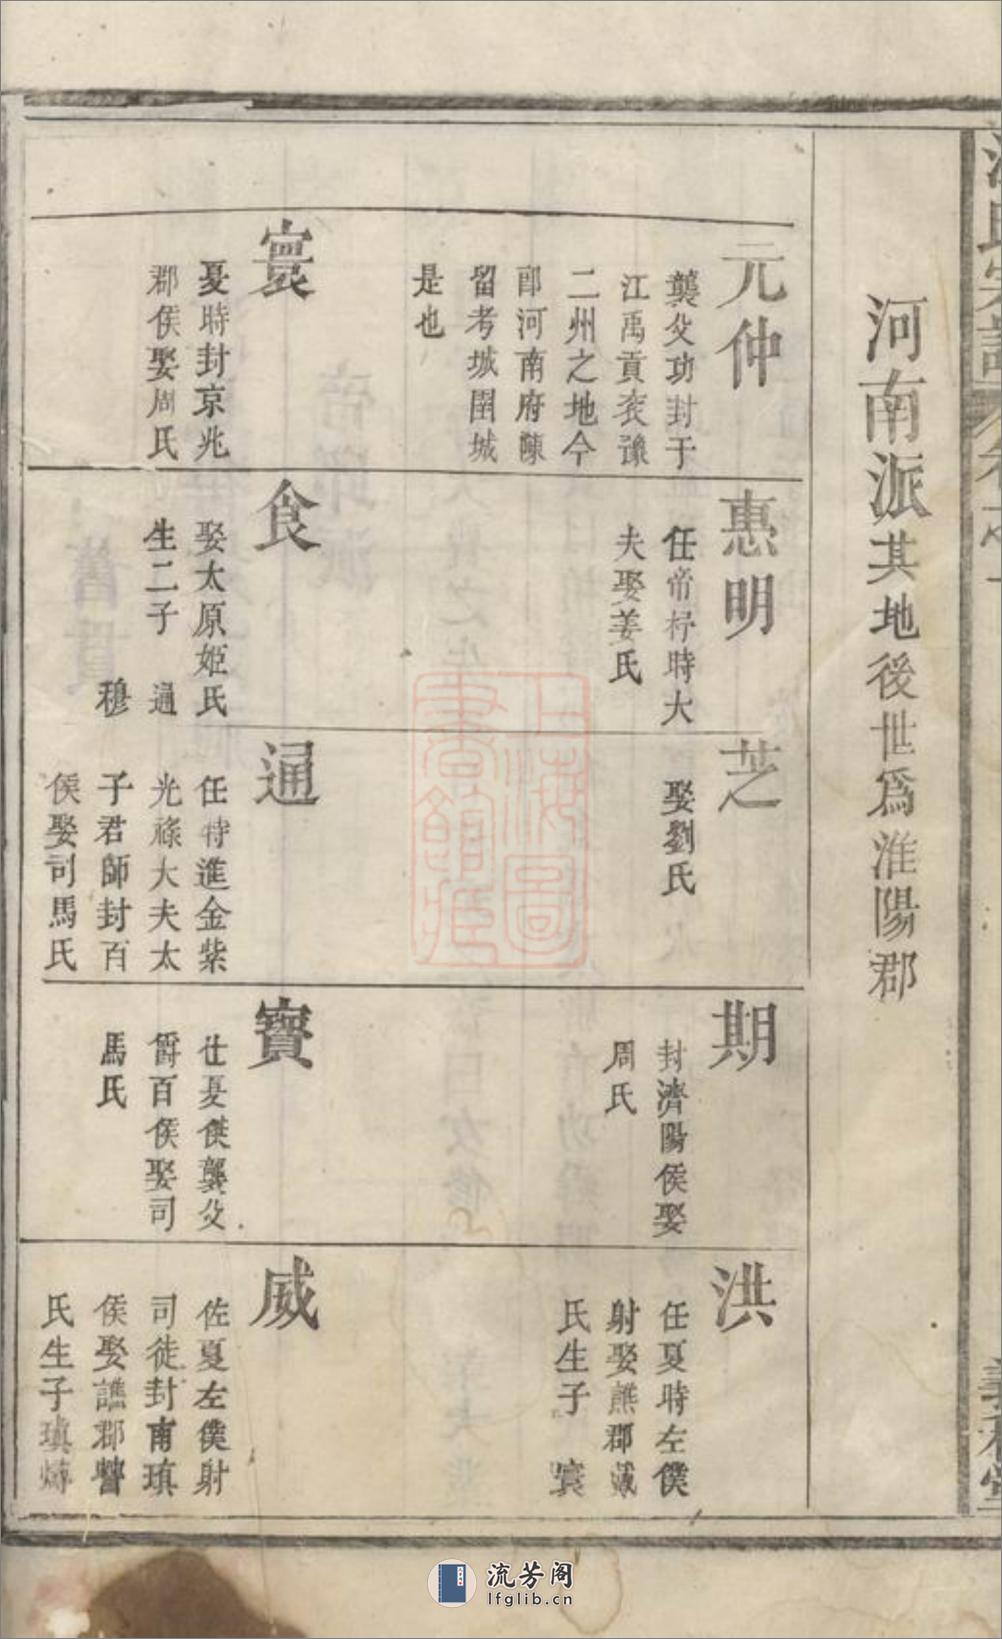 河南派其地後世爲淮陽郡
元仲
龔父功封于
江禹貢兖豫
二州之地今
即河南府陳
留考城圉城
是也
惠明
任帝杼時大
夫娶姜氏
芝
娶劉氏
期
封濟陽侯娶
周氏
洪
任夏時左僕
射娶譙郡戴
氏生子 寰
寰
夏時封京兆
郡侯娶周氏
食
娶太原姬氏
生二子 通
穆
通
任特進金紫
光祿大夫太
子君師封百
侯娶司馬氏
寶
仕夏傑龔父
爵百侯娶司
馬氏
威
佐夏左僕射
司徒封南瑱
侯娶譙郡
氏生子瑱
上海圖書館藏
流芳阁
lfglib.cn